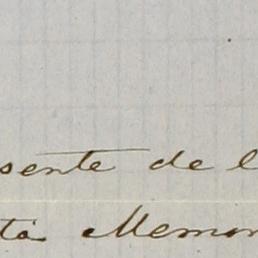 sente de l
ta Memor